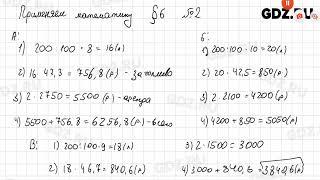 Применяем математику §6 №2
GDZ.RU
А:
1) 200·100·8=16(л)
2) 16·47,3=756,8(р)-за топливо
3) 2·2750=5500(р)-аренда
4) 5500+756,8=6256,8(р)-всего
Б:
1) 200:100·10=20(л)
2) 20·42,5=850(р)
3) 2·2100=4200(р)
4) 4200+850=5050(р)
В: 1) 200:100·9=18(л)
2) 18·46,7=840,6(р)
3) 2·1500=3000
4) 3000+840,6=3840,6(р)
GDZ.RU